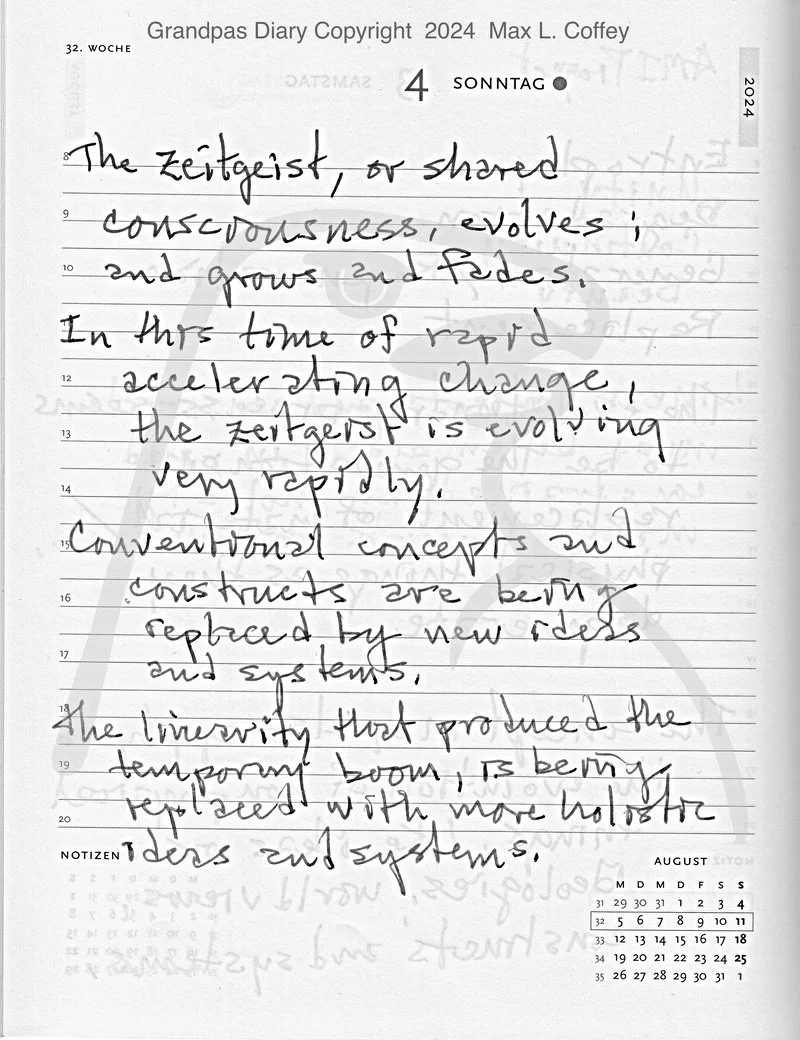 Grandpas Diary Copyright 2024 Max L. Coffey
32. WOCHE
4 SONNTAG
2024
8 The Zeitgeist, or shared
9 consciousness, evolves ;
10 and grows and fades.
In this time of rapid
12 accelerating change,
13 the zeitgeist is evolving
14 very rapidly.
15 Conventional concepts and
16 constructs are being
replaced by new ideas
17 and systems.
18 The linearity that produced the
19 temporary boom, is being
20 replaced with more holistic
NOTIZEN ideas and systems.
AUGUST
M D M D F S S
31 29 30 31 1 2 3 4
32 5 6 7 8 9 10 11
33 12 13 14 15 16 17 18
34 19 20 21 22 23 24 25
35 26 27 28 29 30 31 1